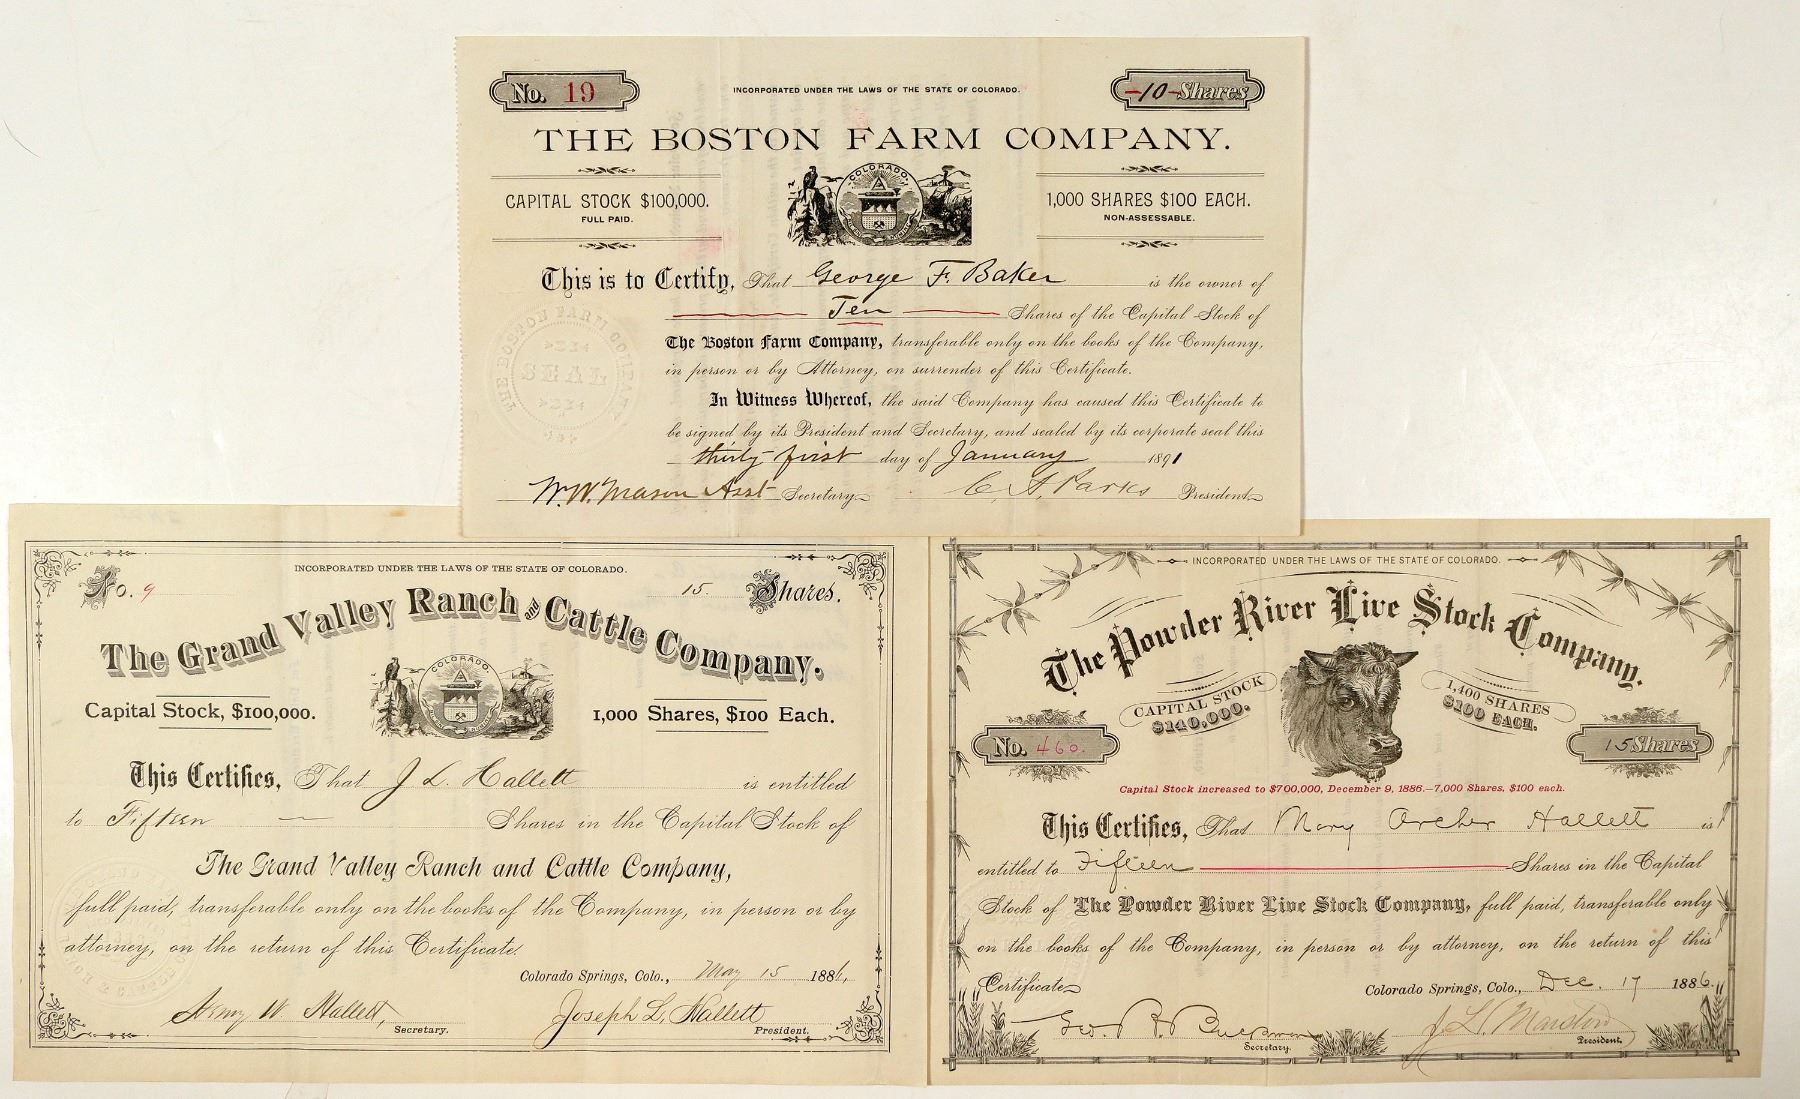 No. 19
INCORPORATED UNDER THE LAWS OF THE STATE OF COLORADO.
-10- Shares
THE BOSTON FARM COMPANY.
CAPITAL STOCK $100,000.
FULL PAID.
COLORADO
1,000 SHARES $100 EACH.
NON-ASSESSABLE.
This is to Certify, That George F. Baker is the owner of
Ten Shares of the Capital Stock of
The Boston Farm Company, transferable only on the books of the Company,
in person or by Attorney, on surrender of this Certificate.
In Witness Whereof, the said Company has caused this Certificate to
be signed by its President and Secretary, and sealed by its corporate seal this
thirty-first day of January 1891
W.W. Mason Asst Secretary
C. A. Parks President
THE BOSTON FARM COMPANY
SEAL
No. 9
INCORPORATED UNDER THE LAWS OF THE STATE OF COLORADO.
15 Shares.
The Grand Valley Ranch and Cattle Company.
Capital Stock, $100,000.
COLORADO
1,000 Shares, $100 Each.
This Certifies, That J L. Hallett is entitled
to Fifteen Shares in the Capital Stock of
The Grand Valley Ranch and Cattle Company,
full paid, transferable only on the books of the Company, in person or by
attorney, on the return of this Certificate.
Colorado Springs, Colo., May 15 1886,
Hallett, Secretary.
Joseph L. Hallett President.
INCORPORATED UNDER THE LAWS OF THE STATE OF COLORADO.
The Powder River Live Stock Company.
CAPITAL STOCK
$140,000.
1,400 SHARES
$100 EACH.
No. 460.
15 Shares
Capital Stock increased to $700,000, December 9, 1886.—7,000 Shares, $100 each.
This Certifies, That Mary Archer Hallett is
entitled to Fifteen Shares in the Capital
Stock of The Powder River Live Stock Company, full paid, transferable only
on the books of the Company, in person or by attorney, on the return of this
Certificate
Colorado Springs, Colo., Dec. 17 1886.
Secretary.
President.